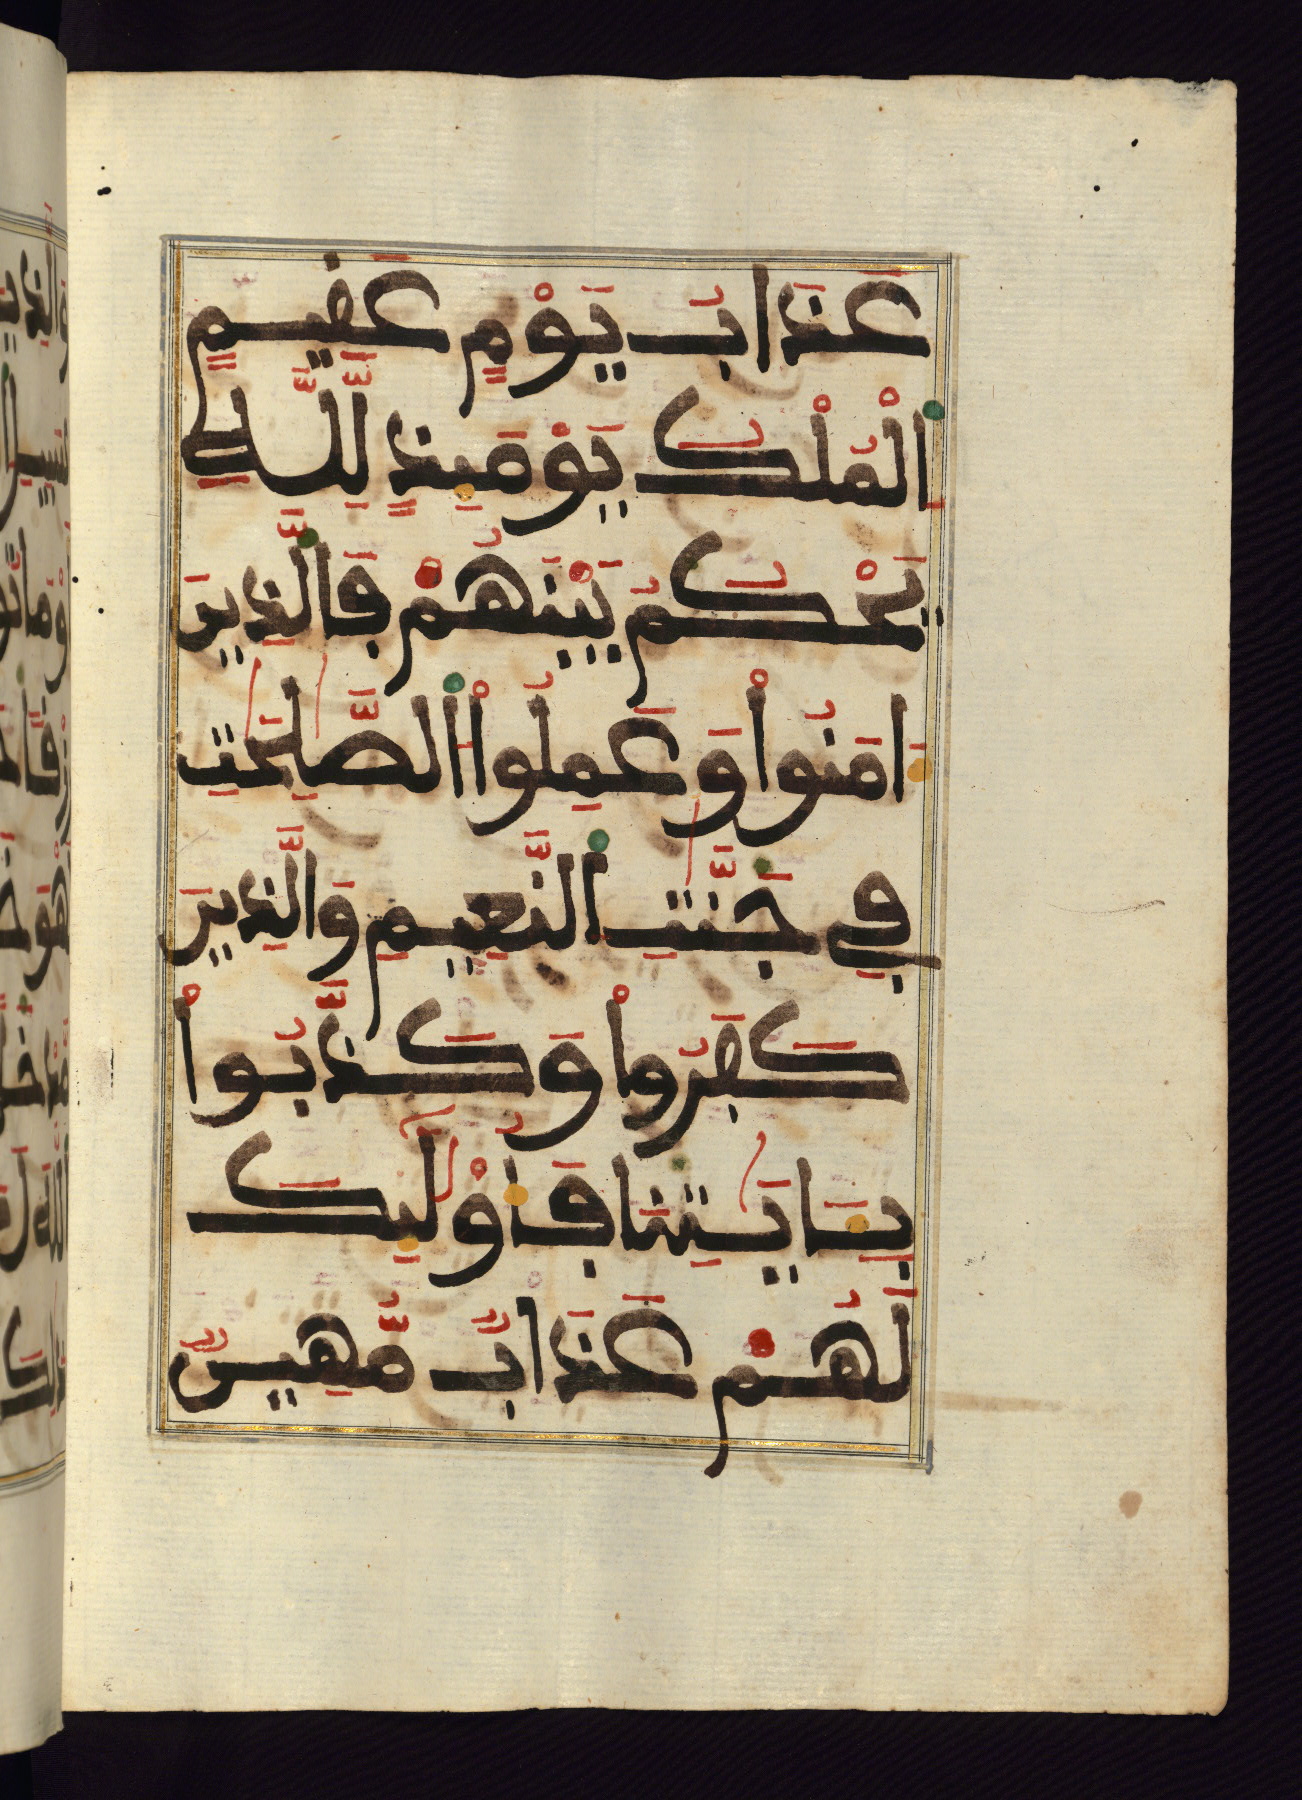 عَذَابَ يَوْمٍ عَفِيمٍ
اِلْمُلْكُ يَوْمَئِذٍ لِّلهِ
يَحْكُمُ بَيْنَهُمْ فَالذِينَ
ءَامَنُواْ وَعَمِلُواْ الصَّٰلِحَٰتِ
فِي جَنَّٰتِ اِلنَّعِيمِ وَالذِينَ
كَفَرُواْ وَكَذَّبُواْ
بِـَٔايَٰتِنَا فَأُوْلَٰٓئِكَ
لَهُمْ عَذَابٌ مُّهِينٌ